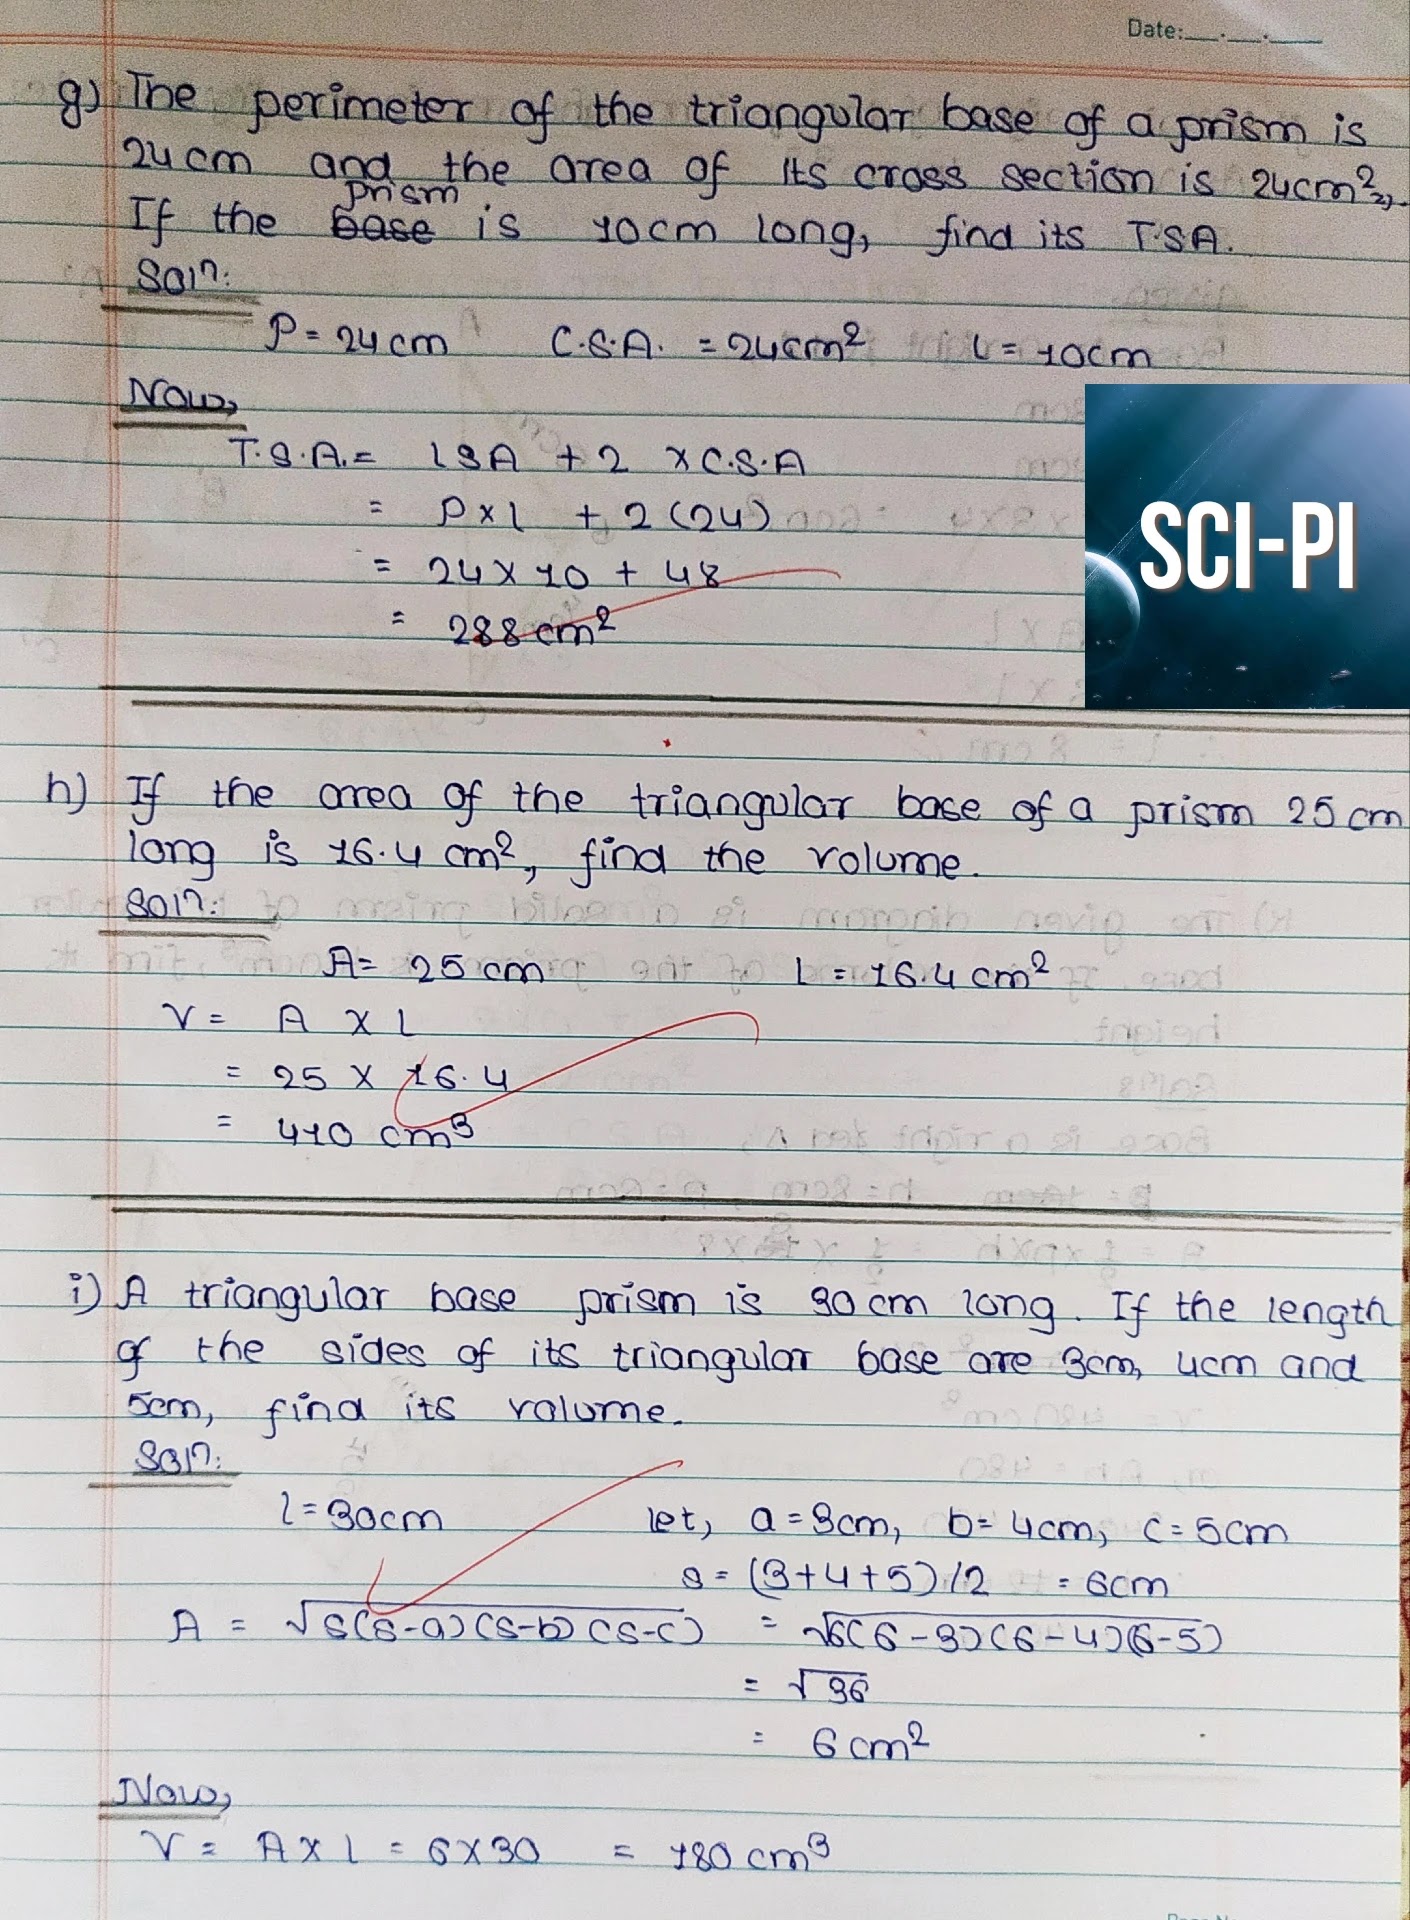 Date:__.__.__
g) The perimeter of the triangular base of a prism is
24cm and the area of its cross section is 24cm²,
prism
If the base is 10cm long, find its T.S.A.
Soln:
P = 24cm C.S.A. = 24cm² l = 10cm
Now,
T.S.A. = LSA + 2 × C.S.A
= P × l + 2(24)
= 24 × 10 + 48
= 288 cm²
SCI-PI
h) If the area of the triangular base of a prism 25 cm
long is 16.4 cm², find the volume.
Soln:
A = 25 cm l = 16.4 cm²
V = A × l
= 25 × 16.4
= 410 cm³
i) A triangular base prism is 30cm long. If the length
of the sides of its triangular base are 3cm, 4cm and
5cm, find its volume.
Soln:
l = 30cm let, a = 3cm, b = 4cm, c = 5cm
s = (3+4+5)/2 = 6cm
A = √s(s-a)(s-b)(s-c) = √6(6-3)(6-4)(6-5)
= √36
= 6cm²
Now,
V = A × l = 6 × 30 = 180 cm³